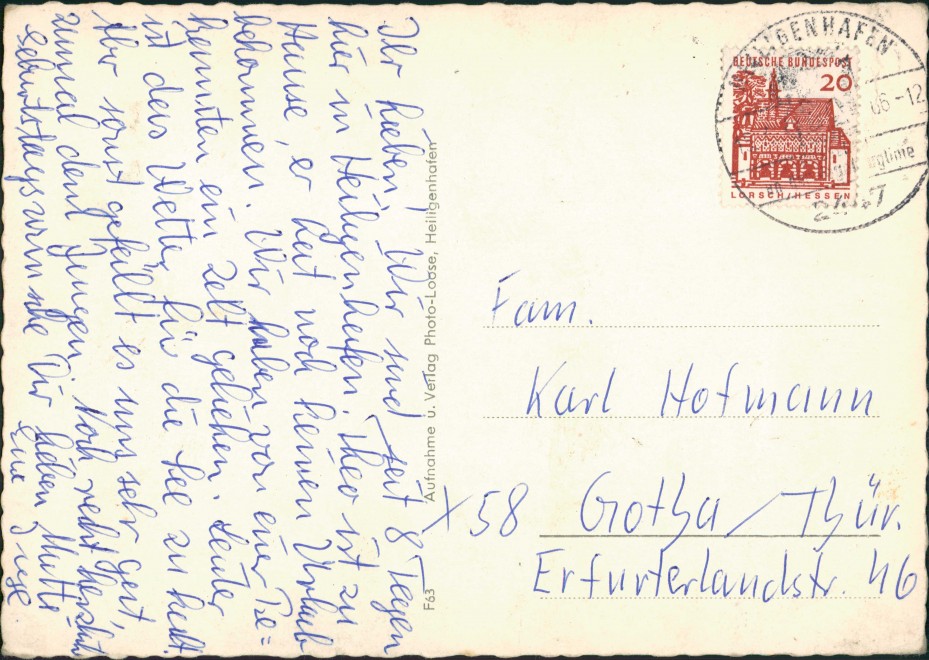 Ihr Lieben! Wir sind seit 8 Tagen
hier in Heiligenhafen. Theo ist zu
Hause, er hat noch keinen Urlaub
bekommen. Wir haben von einer Be=
kannten ein Zelt geliehen. Leider
ist das Wetter für die See zu kalt
Aber sonst gefällt es uns sehr gut,
zumal dem Jungen. Noch recht herzlich
Geburtstagswünsche Dir lieben Mutti
Eure Inge
Aufnahme u. Verlag Photo-Loose, Heiligenhafen
F63
HEILIGENHAFEN
06-12
2447
DEUTSCHE BUNDESPOST
20
LORSCH/HESSEN
Fam.
Karl Hofmann
X58 Gotha/Thür.
Erfurterlandstr. 46